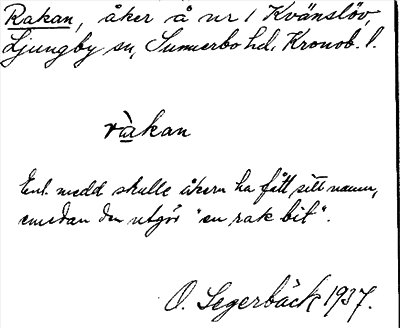 Rakan, åker å nr 1 Kvänslöv,
Ljungby sn, Sunnerbo hd, Kronob. l.
ràkan
Enl. medd skulle åkern ha fått sitt namn,
emedan den utgör "en rak bit".
O. Segerbäck 1937.